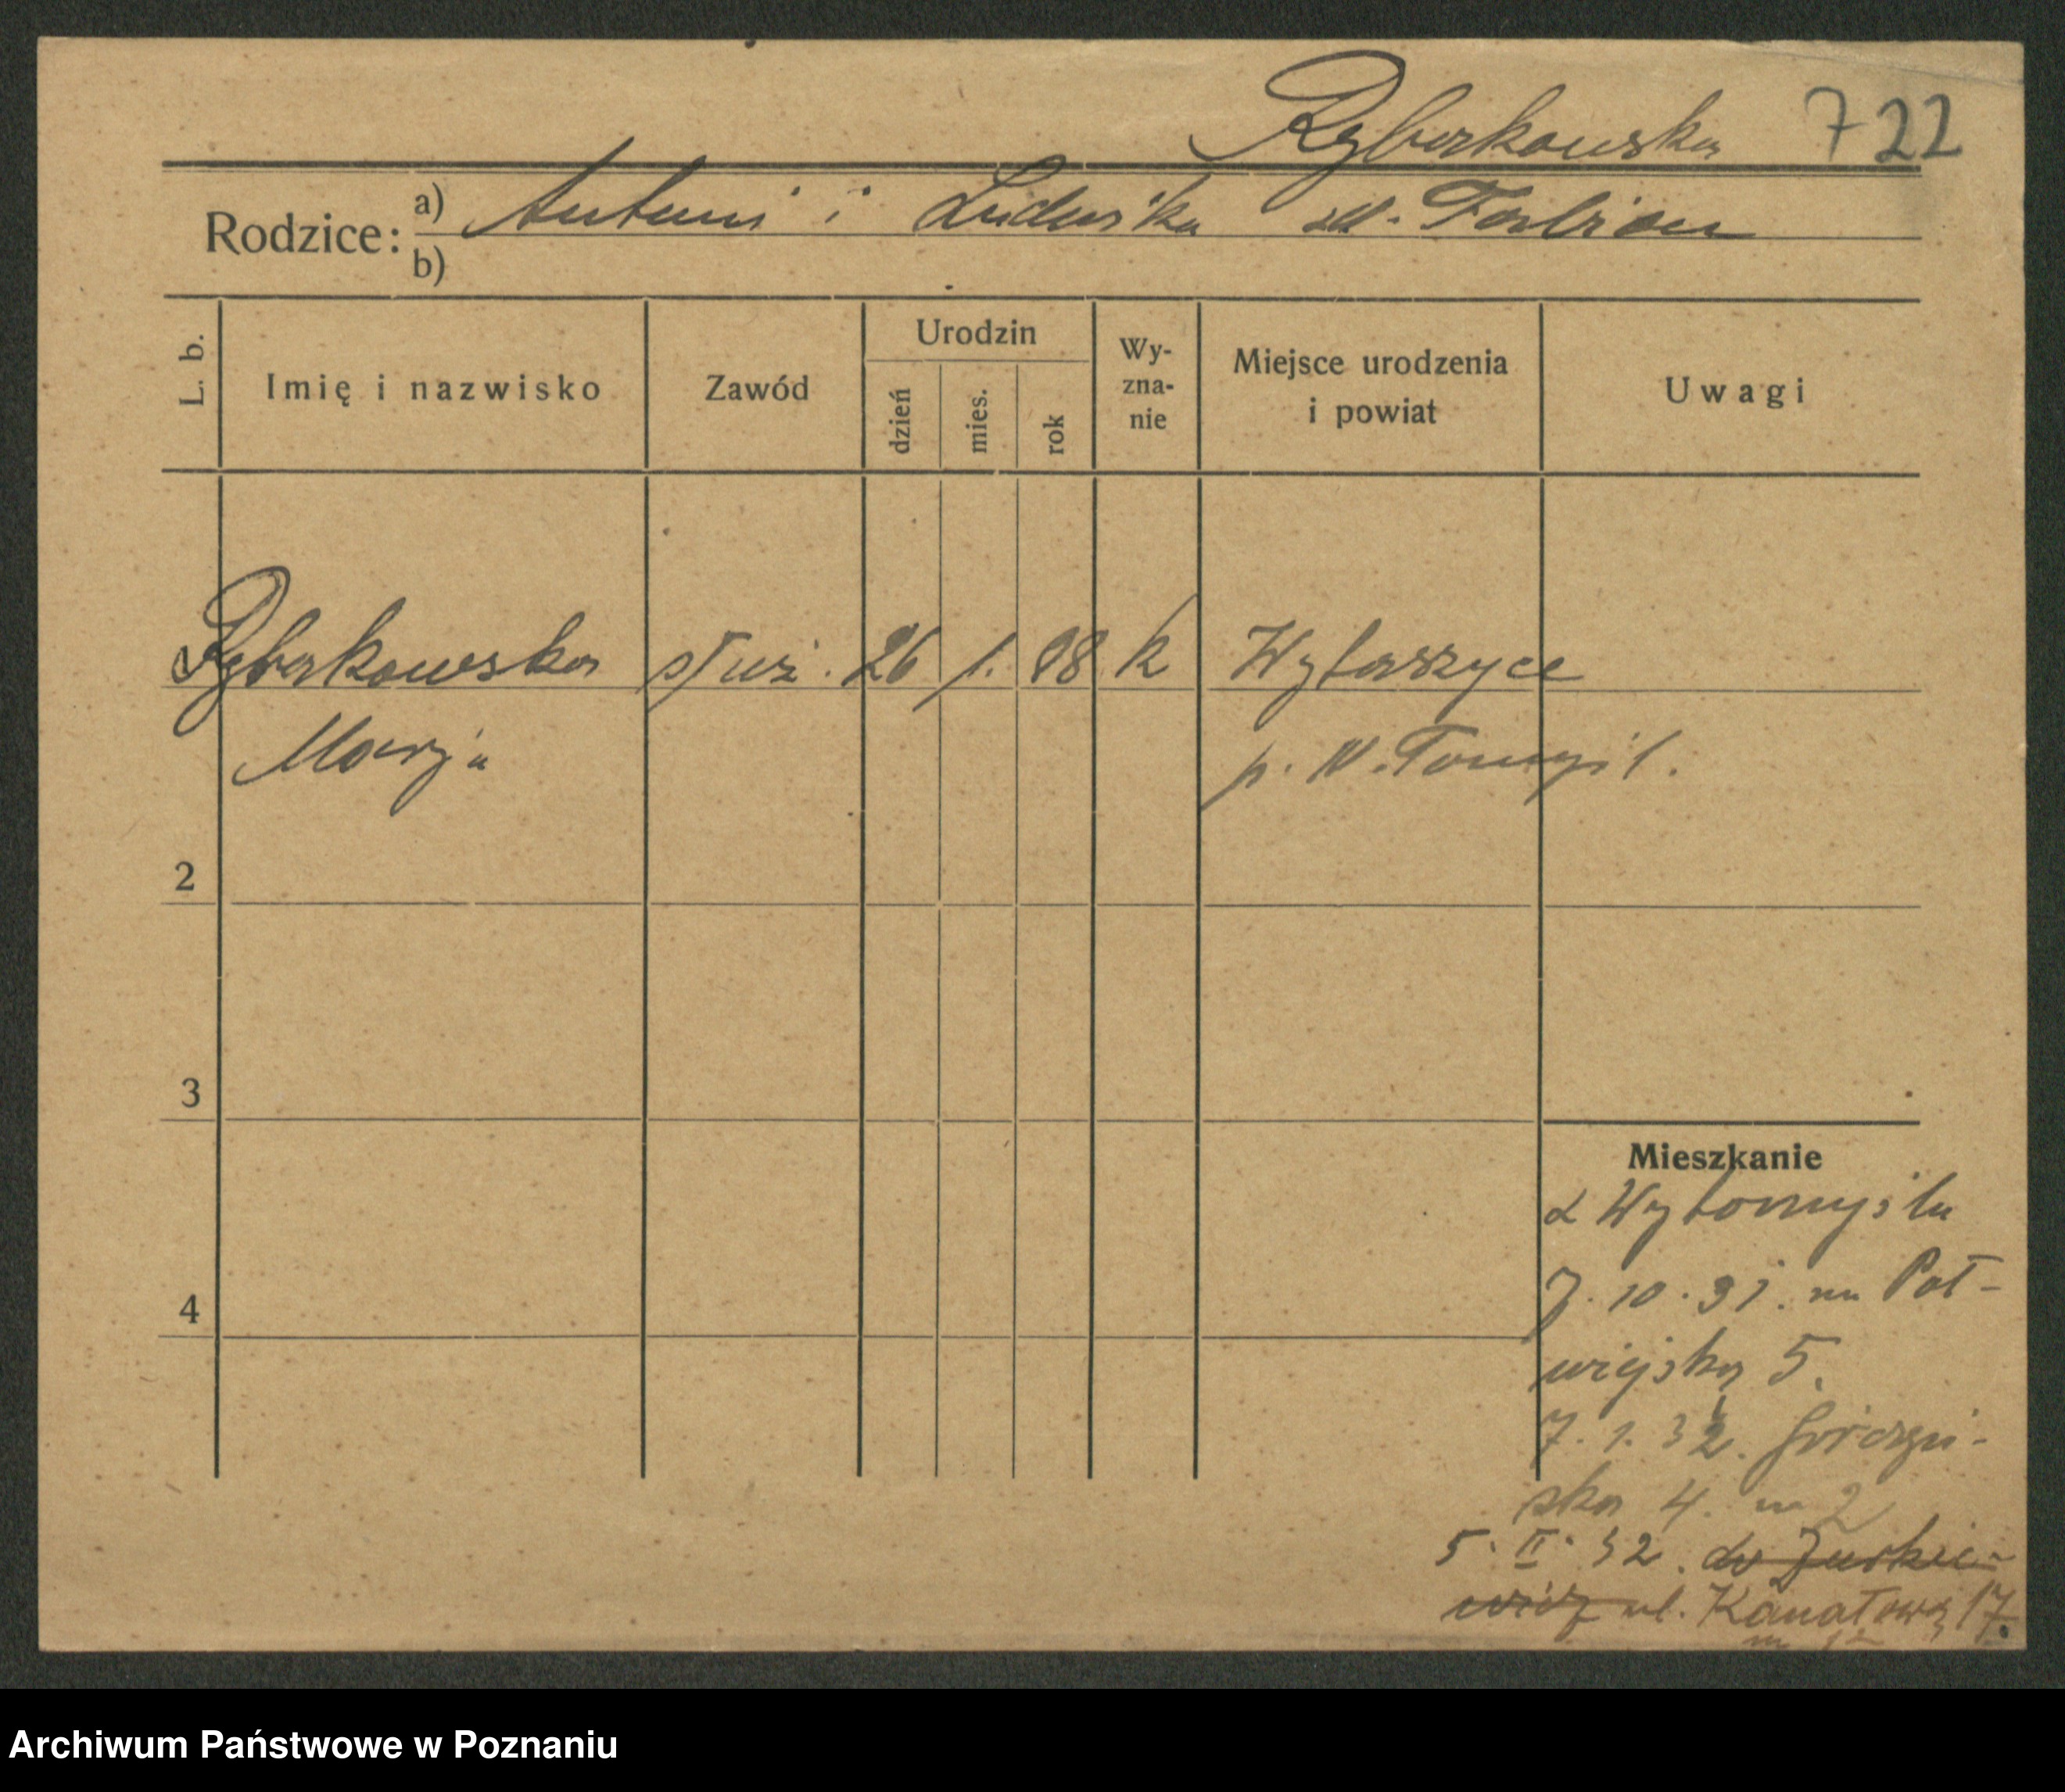 Rybarkowska 722
Rodzice: a) Antoni i Ludwika zd. Fabian
b)
L. b. Imię i nazwisko Zawód Urodzin dzień mies. rok Wy-zna-nie Miejsce urodzenia i powiat Uwagi
Rybarkowska służ. 26 1. 98 k Wytaszyce
Marja p. N. Tomyśl.
2
3
Mieszkanie
z Wytomyśla
4
7. 10. 31. na Pół-
wiejską 5.
7. 1. 32. Górczyń-
ska 4. m 2
5. II. 32. do Jurkie-
wicz ul. Kanałową 17.
m 12
Archiwum Państwowe w Poznaniu